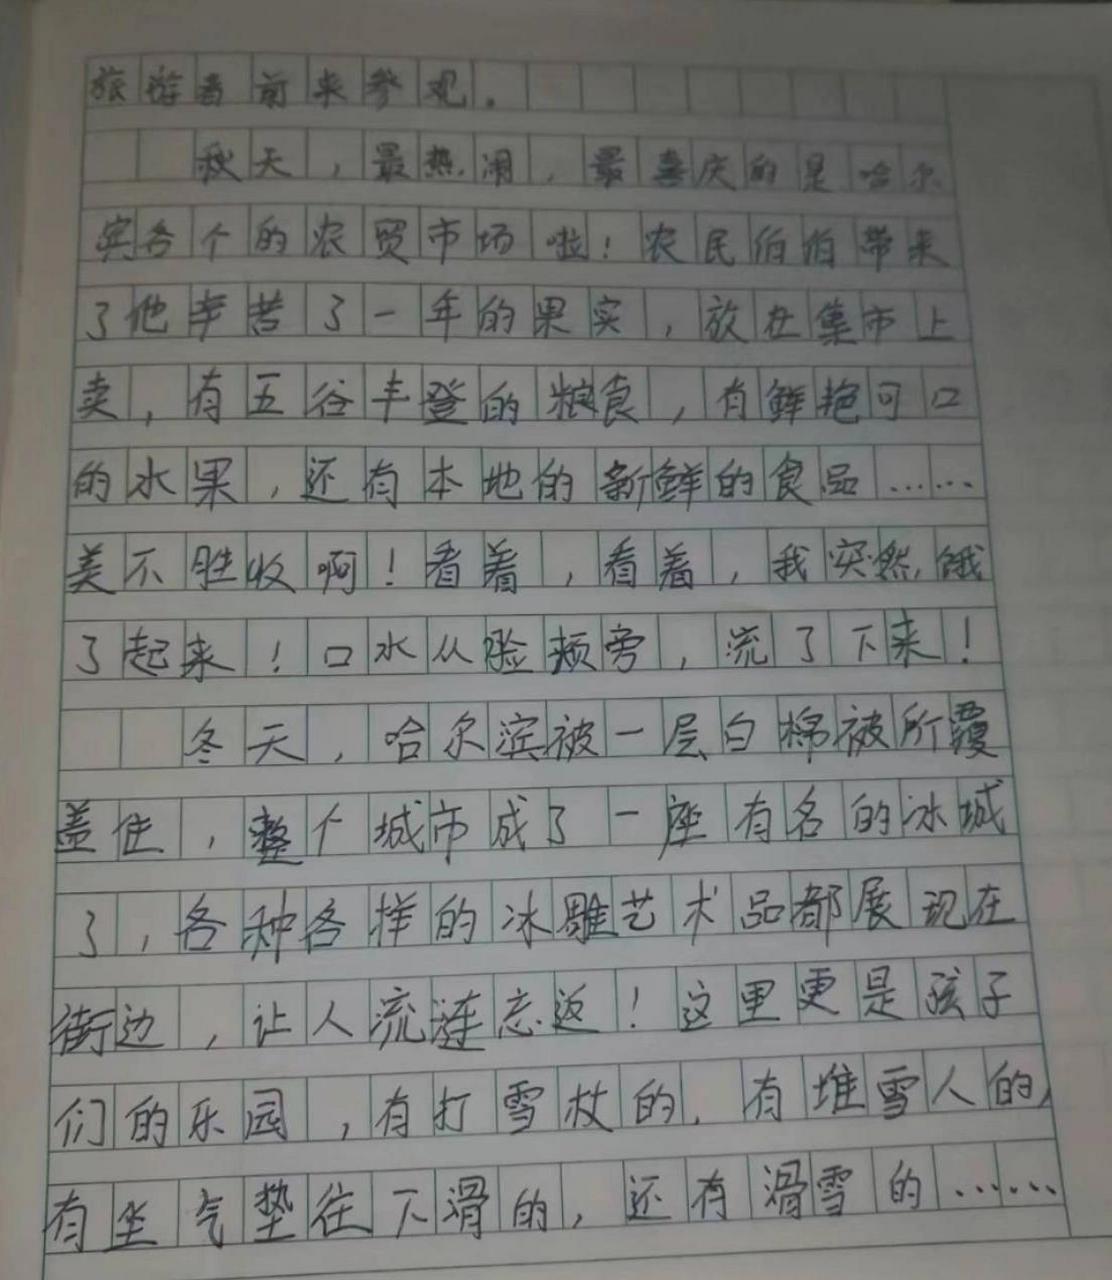 旅游者前来参观。
秋天，最热闹，最喜庆的是哈尔
宾各个的农贸市场啦！农民伯伯带来
了他辛苦了一年的果实，放在集市上
卖，有五谷丰登的粮食，有鲜艳可口
的水果，还有本地的新鲜的食品……
美不胜收啊！看着，看着，我突然饿
了起来！口水从脸颊旁，流了下来！
冬天，哈尔滨被一层白棉被所覆
盖住，整个城市成了一座有名的冰城
了，各种各样的冰雕艺术品都展现在
街边，让人流涟忘返！这里更是孩子
们的乐园，有打雪杖的，有堆雪人的，
有坐气垫往下滑的，还有滑雪的……